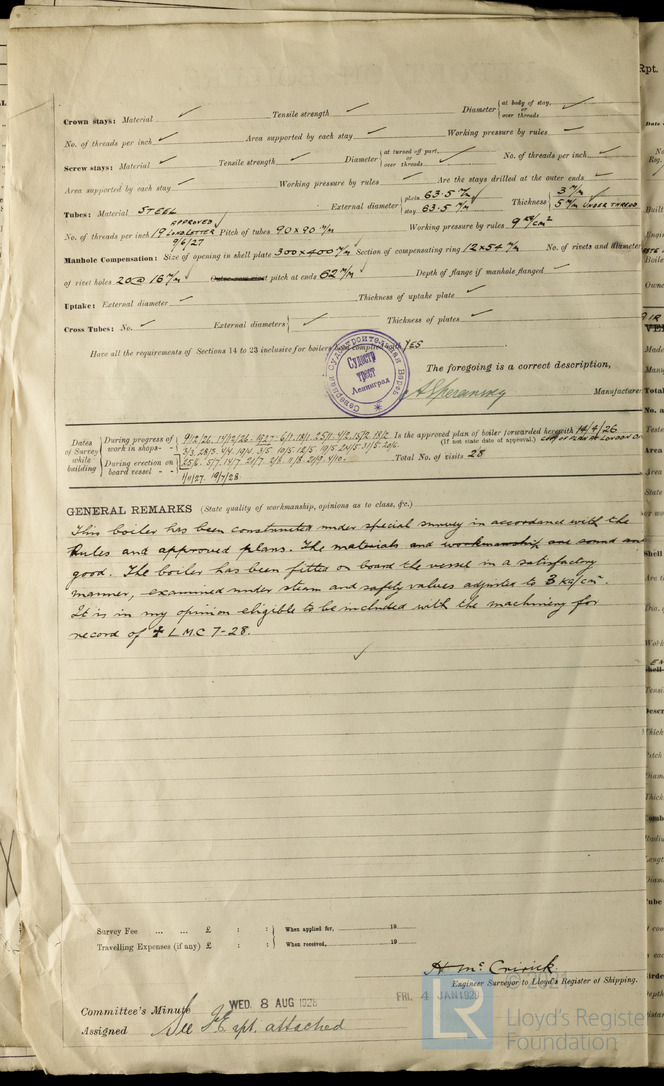 Crown stays: Material ✓ Tensile strength ✓ Diameter { at body of stay, or over threads ✓
No. of threads per inch ✓ Area supported by each stay ✓ Working pressure by rules ✓
Screw stays: Material ✓ Tensile strength ✓ Diameter { at turned off part, or over threads ✓ No. of threads per inch ✓
Area supported by each stay ✓ Working pressure by rules ✓ Are the stays drilled at the outer ends ✓
Tubes: Material STEEL External diameter { plain 63.5 m/m stay 63.5 m/m Thickness { 3 m/m 5 m/m UNDER THREAD
No. of threads per inch 19 APPROVED LON LETTER 9/6/27 Pitch of tubes 90 x 90 m/m Working pressure by rules 9 KG/cm²
Manhole Compensation: Size of opening in shell plate 300x400 m/m Section of compensating ring 12x54 m/m No. of rivets and diameter
of rivet holes 20 @ 16 m/m pitch at ends 62 m/m Depth of flange if manhole flanged ✓
Uptake: External diameter ✓ Thickness of uptake plate ✓
Cross Tubes: No. ✓ External diameters { ✓ Thickness of plates ✓
Have all the requirements of Sections 14 to 23 inclusive for boilers been complied with YES
Северная Судостроительная Верфь
Судостр
трест
Ленинград
The foregoing is a correct description,
A Speransky Manufacturer
Dates of Survey while building
During progress of work in shops - - 9/12/26. 14/12/26 - 1927 - 6/1. 18/1. 25/1. 4/2. 15/2. 18/2.
3/3. 28/3. 4/4. 19/4. 3/5. 10/5. 12/5. 19/5. 24/5. 31/5. 20/6.
Is the approved plan of boiler forwarded herewith 14/4/26
(If not state date of approval.) COPY OF PLAN AT LONDON O
During erection on board vessel - - 25/6. 5/7. 14/7. 21/7. 2/8. 11/8. 21/9. 4/10.
1/11/27. 19/7/28
Total No. of visits 28
GENERAL REMARKS (State quality of workmanship, opinions as to class, &c.)
This boiler has been constructed under special survey in accordance with the
Rules and approved plans. The materials and workmanship are sound and
good. The boiler has been fitted on board the vessel in a satisfactory
manner, examined under steam and safety valves adjusted to 3 kg/cm².
It is in my opinion eligible to be included with the machinery for
record of ✠ L.M.C 7-28.
✓
Survey Fee ... ... £ : : } When applied for, 19
Travelling Expenses (if any) £ : : } When received, 19
H Mc Cririck
Engineer Surveyor to Lloyd's Register of Shipping.
Committee's Minute WED. 8 AUG 1928 FRI. 4 JAN 1929
Assigned See F.E. rpt. attached
© 2021
LR
Lloyd's Registe
Foundation
Rpt.